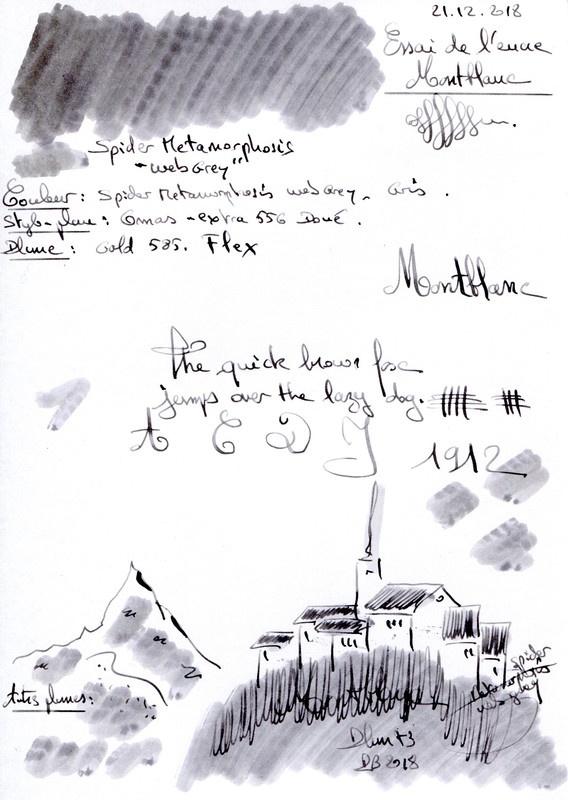 21.12.2018
Essai de l'encre
Montblanc
Spider Metamorphosis
"web Grey"
Couleur : Spider Metamorphosis web Grey. Gris.
Stylo-plume : Omas - extra 556 Doué.
Plume : Gold 585. Flex
Montblanc
The quick brown fox
jumps over the lazy dog.
A C D J
1912
Autres plumes :
Spider
Metamorphosis
web grey
DB 2018